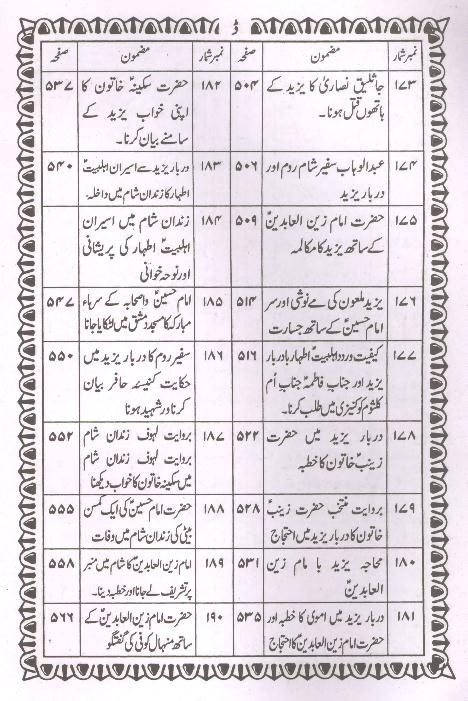 ڈ
نمبر شمار مضمون صفحہ
۱۷۳ جاثلیق نصاریٰ کا یزید کے ۵۰۴
ہاتھوں قتل ہونا۔
۱۷۴ عبدالوہاب سفیر شام روم اور ۵۰۶
دربار یزید
۱۷۵ حضرت امام زین العابدینؑ ۵۰۹
کے ساتھ یزید کا مکالمہ
۱۷۶ یزید ملعون کی مے نوشی اور سر ۵۱۴
امام حسینؑ کے ساتھ جسارت
۱۷۷ کیفیت ورود اہلبیتؑ اطہار بادربار ۵۱۶
یزید اور جناب فاطمہؑ جناب اُم
کلثوم کو کنیزی میں طلب کرنا۔
۱۷۸ دربار یزید میں حضرت ۵۲۲
زینبؑ خاتون کا خطبہ
۱۷۹ بروایت منتخب حضرت زینبؑ ۵۲۸
خاتون کا دربار یزید میں احتجاج
۱۸۰ محاجہ یزید با امام زین ۵۳۱
العابدینؑ
۱۸۱ دربار یزید میں اموی کا خطبہ اور ۵۳۵
حضرت امام زین العابدینؑ کا احتجاج
نمبر شمار مضمون صفحہ
۱۸۲ حضرت سکینہؑ خاتون کا ۵۳۷
اپنی خواب یزید کے
سامنے بیان کرنا۔
۱۸۳ دربار یزید سے اسیران اہلبیتؑ ۵۴۰
اطہار کا زندان شام میں داخلہ۔
۱۸۴ زندان شام میں اسیران
اہلبیتؑ اطہار کی پریشانی
اور نوحہ خوانی
۱۸۵ امام حسینؑ واصحابہ کے سرہاء ۵۴۷
مبارکہ کا مسجد دمشق میں لٹکایا جانا
۱۸۶ سفیر روم کا دربار یزید میں ۵۵۰
حکایت کنیسہ حافر بیان
کرنا ور شہید ہونا
۱۸۷ بروایت لہوف زندان شام ۵۵۲
بروایت لہوف زندان شام
میں سکینہ خاتون کا خواب دیکھنا
۱۸۸ حضرت امام حسینؑ کی ایک کمسن ۵۵۵
بیٹی کی زندان شام میں وفات
۱۸۹ امام زین العابدینؑ کا شام میں منبر ۵۵۸
پر تشریف لے جانا اور خطبہ دینا۔
۱۹۰ حضرت امام زین العابدینؑ کے ۵۶۶
ساتھ منہال کوفی کی گفتگو